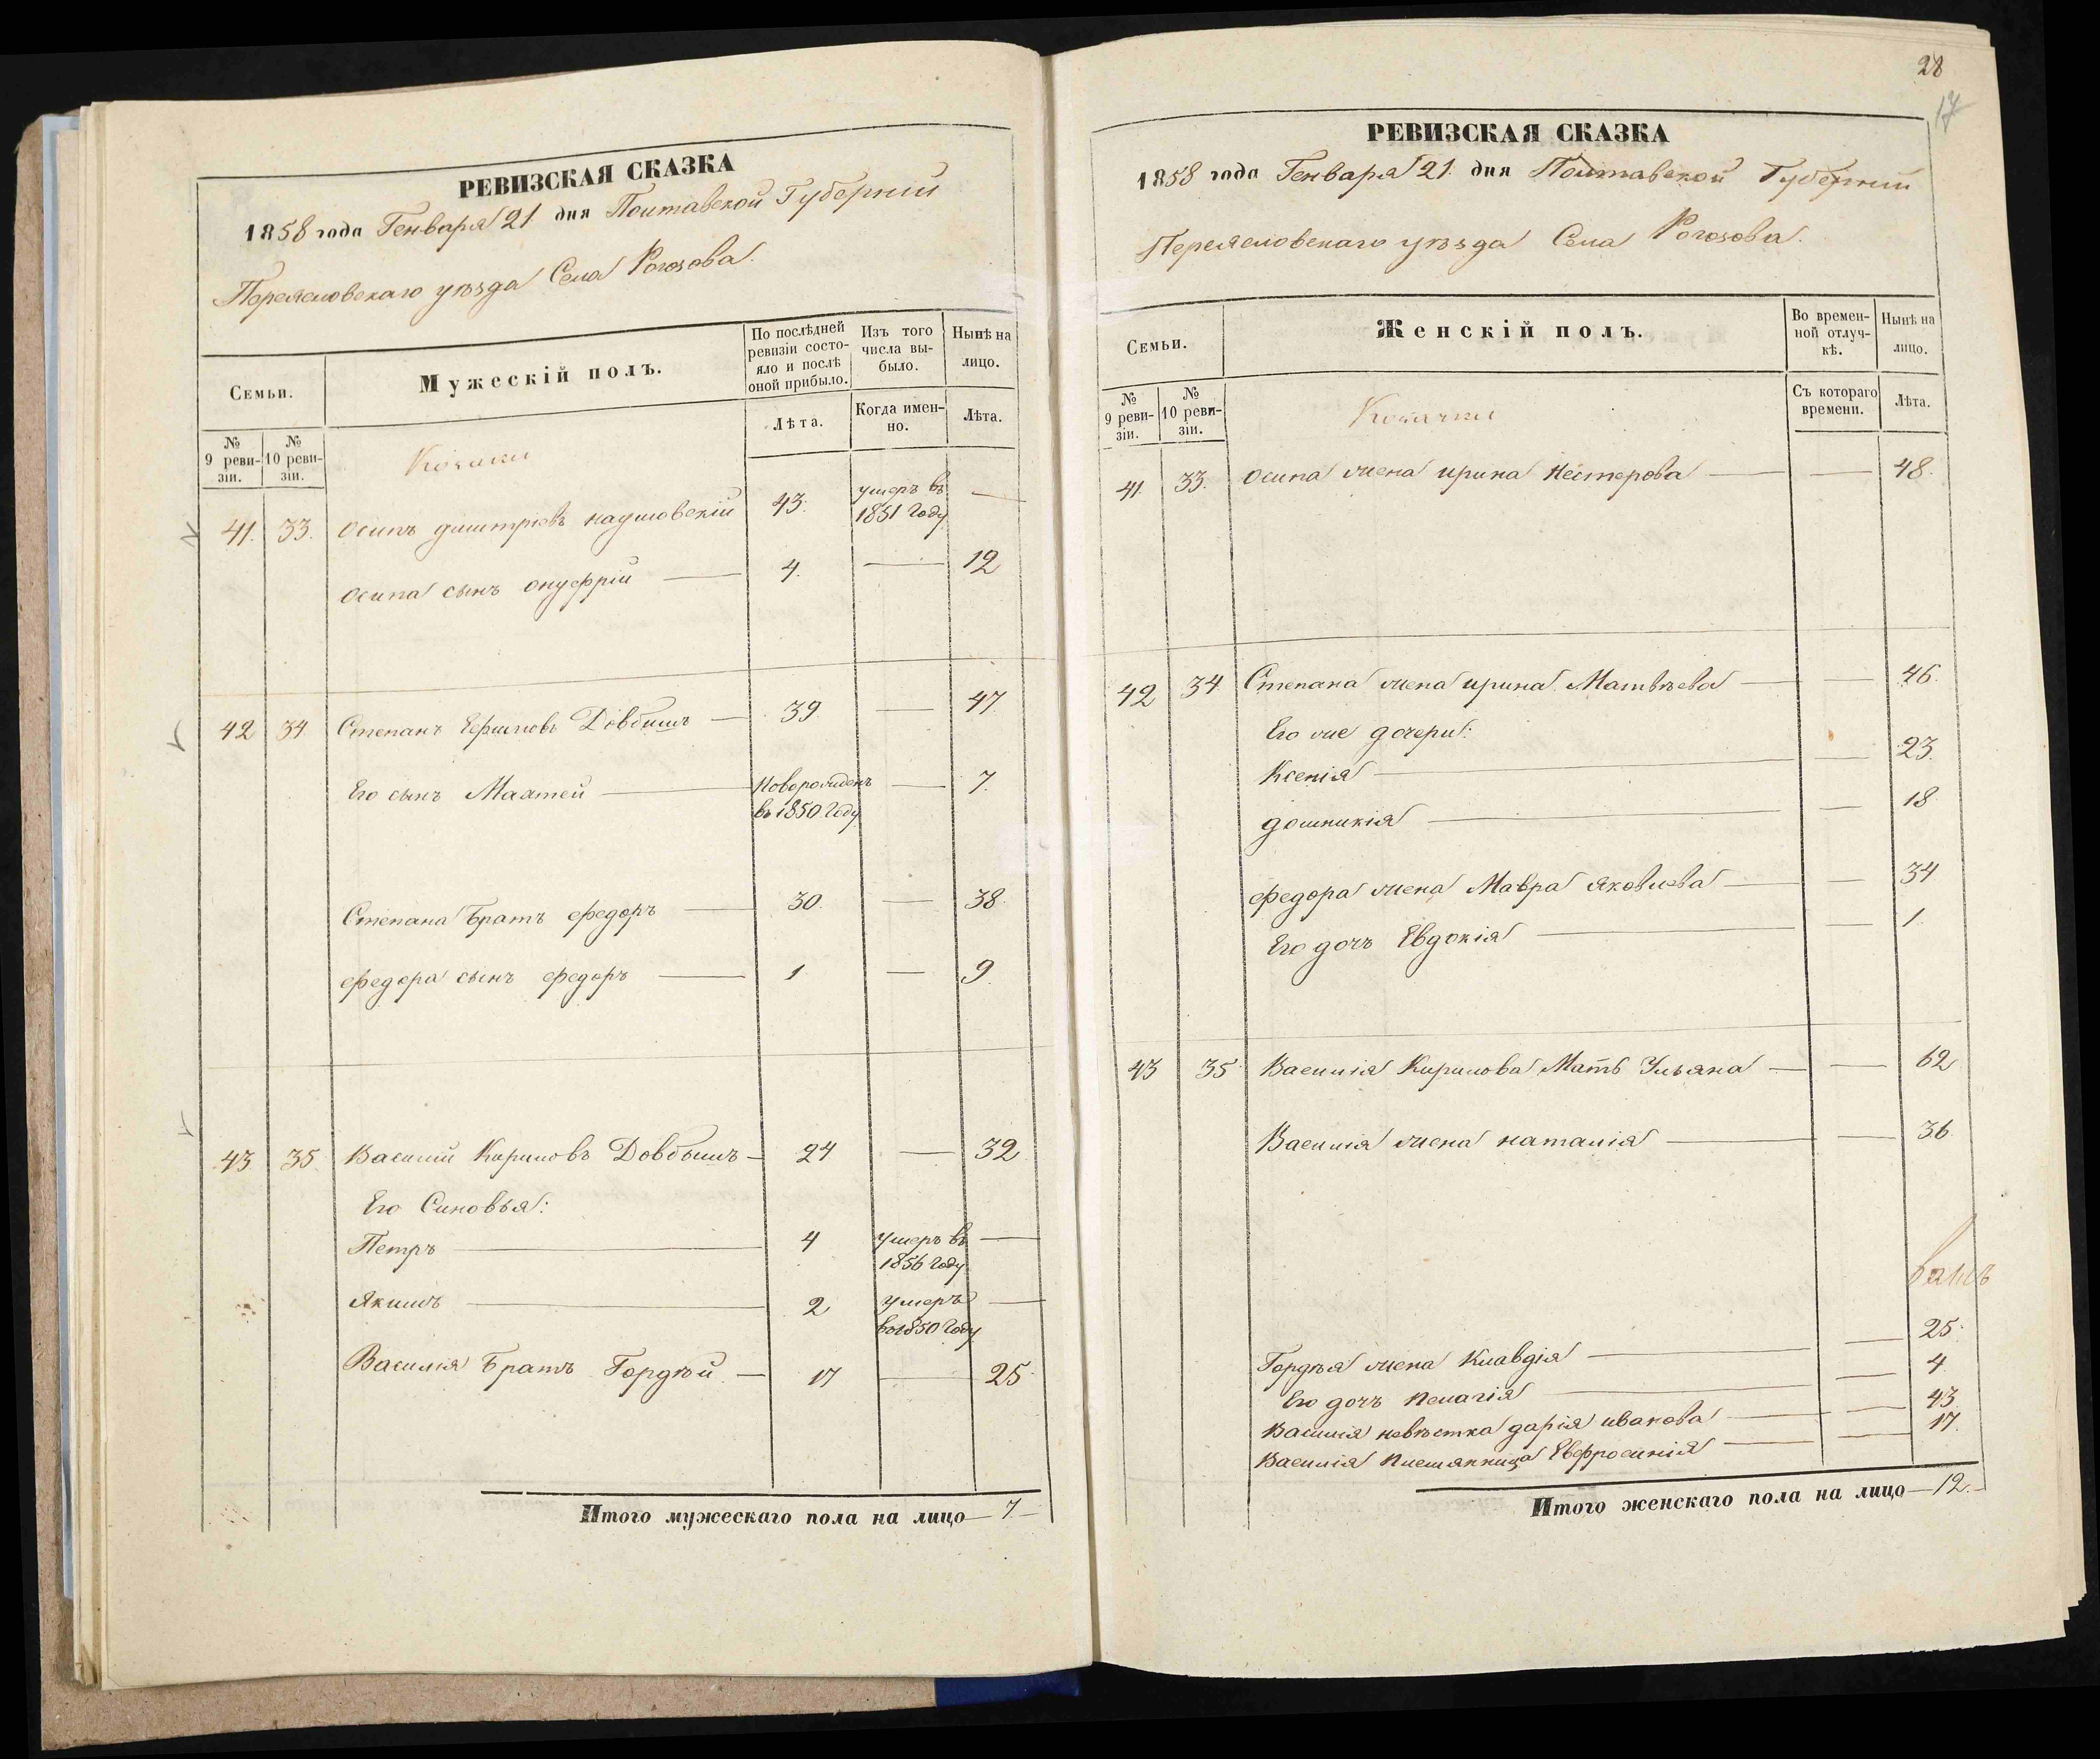 РЕВИЗСКАЯ СКАЗКА
1858 года Генваря 21 дня Полтавской Губерніи
Переяславскаго уѣзда Села Рогозова.
Семьи.
Мужескій полъ.
По послѣдней ревизіи состояло и послѣ оной прибыло.
Изъ того числа выбыло.
Нынѣ на лицо.
Лѣта.
Когда именно.
Лѣта.
№ 9 ревизіи.
№ 10 ревизіи.
Козаки
41. 33. Осипъ дмитріевъ надтовскій 43. умеръ въ 1851 Году —
Осипа сынъ онуфрій — 4. — 12
42 34 Степанъ Ефимовъ Довбишъ — 39 — 47.
Его сынъ Матѳей — Новорожденъ въ 1850 Году — 7.
Степана Братъ ѳедоръ — 30. — 38.
ѳедора сынъ ѳедоръ — 1 — 9.
43 35. Василій Кириловъ Довбышъ — 24 — 32
Его Сыновья:
Петръ — 4 умеръ въ 1856 Году —
Якимъ — 2 умеръ въ 1850 Году —
Василія Братъ Гордѣй — 17 — 25.
Итого мужескаго пола на лицо — 7 —
28
17
РЕВИЗСКАЯ СКАЗКА
1858 года Генваря 21 дня Полтавской Губерніи
Переяславскаго уѣзда Села Рогозова.
Семьи.
Женскій полъ.
Во временной отлучкѣ.
Нынѣ на лицо.
Съ котораго времени.
Лѣта.
№ 9 ревизіи.
№ 10 ревизіи.
Козачки
41. 33. Осипа жена ирина Нестерова — — 48.
42 34 Степана жена ирина Матвѣева — — 46.
Его же дочери:
Ксенія — — 23.
домникія — — 18
ѳедора жена Мавра яковлева — — 34
Его дочь Евдокія — — 1.
43 35 Василія Кирилова Мать Ульяна — — 62
Василія жена наталія — — 36
Гордѣя жена Клавдія — — 25.
Его дочь пелагія — — 4
Василія невѣстка дарія иванова — — 43
Василія племянница Евфросинія — — 17.
Итого женскаго пола на лицо — 12. —